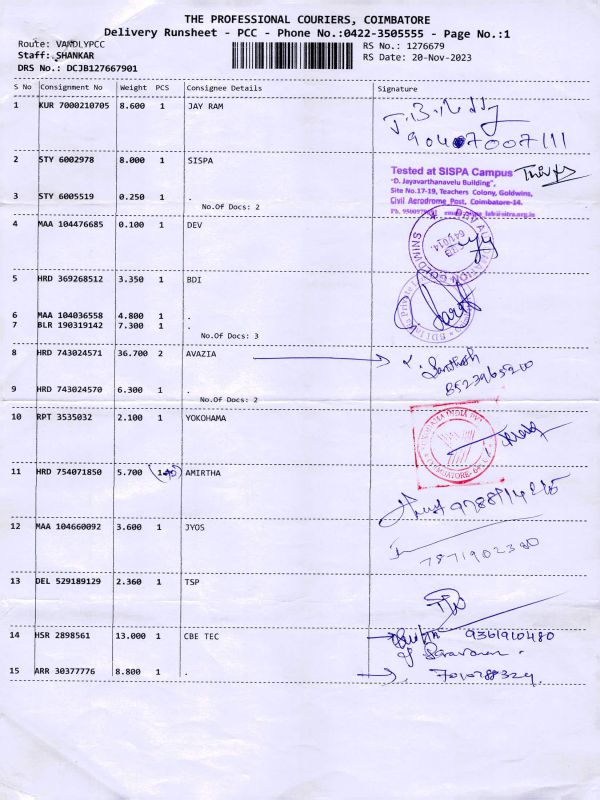 THE PROFESSIONAL COURIERS, COIMBATORE
Delivery Runsheet - PCC - Phone No.:0422-3505555 - Page No.:1
Route: VANDLYPCC
RS No.: 1276679
Staff: SHANKAR
RS Date: 20-Nov-2023
DRS No.: DCJB127667901
S No Consignment No Weight PCS Consignee Details Signature
1 KUR 7000210705 8.600 1 JAY RAM
2 STY 6002978 8.000 1 SISPA
Tested at SISPA Campus
"D. Jayavarthanavelu Building",
Site No.17-19, Teachers Colony, Goldwins,
Civil Aerodrome Post, Coimbatore-14.
3 STY 6005519 0.250 1 .
No.Of Docs: 2
4 MAA 104476685 0.100 1 DEV
GOLDWINS
5 HRD 369268512 3.350 1 BDI
6 MAA 104036558 4.800 1 .
7 BLR 190319142 7.300 1 .
No.Of Docs: 3
8 HRD 743024571 36.700 2 AVAZIA
Santhosh
9 HRD 743024570 6.300 1 .
No.Of Docs: 2
10 RPT 3535032 2.100 1 YOKOHAMA
11 HRD 754071850 5.700 AMIRTHA
12 MAA 104660092 3.600 1 JYOS
7871902380
13 DEL 529189129 2.360 1 TSP
14 HSR 2898561 13.000 1 CBE TEC
9361910480
15 ARR 30377776 8.800 1 .